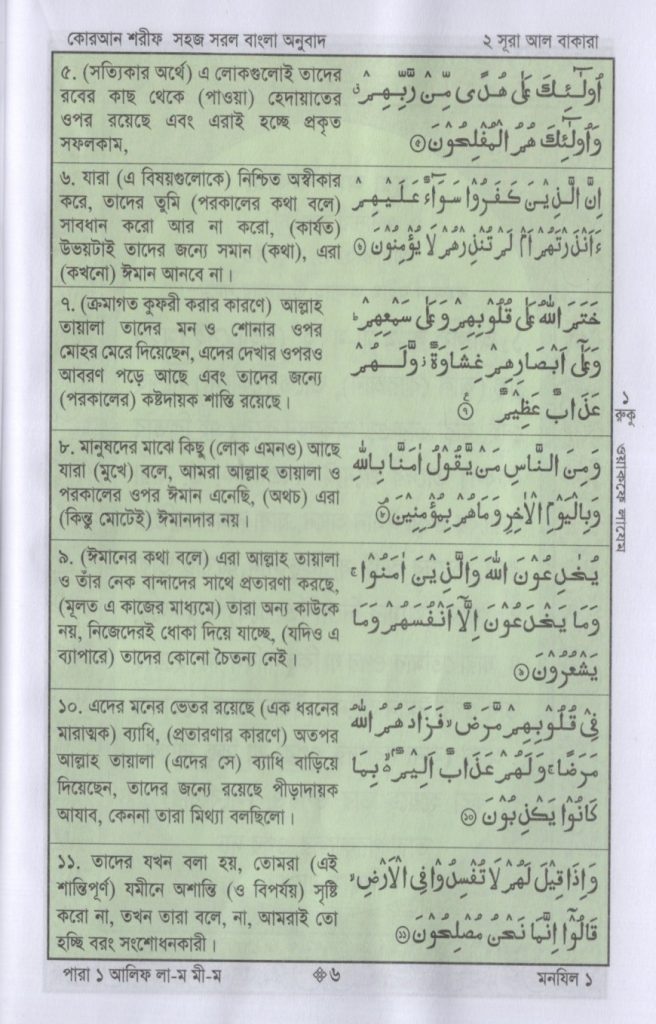 কোরআন শরীফ সহজ সরল বাংলা অনুবাদ
২ সূরা আল বাকারা
৫. (সত্যিকার অর্থে) এ লোকগুলোই তাদের
রবের কাছ থেকে (পাওয়া) হেদায়াতের
ওপর রয়েছে এবং এরাই হচ্ছে প্রকৃত
সফলকাম,
اُولٰٓئِكَ عَلٰى هُدًى مِّنْ رَّبِّهِمْ ق
وَاُولٰٓئِكَ هُمُ الْمُفْلِحُوْنَ ۝٥
৬. যারা (এ বিষয়গুলোকে) নিশ্চিত অস্বীকার
করে, তাদের তুমি (পরকালের কথা বলে)
সাবধান করো আর না করো, (কার্যত)
উভয়টাই তাদের জন্যে সমান (কথা), এরা
(কখনো) ঈমান আনবে না।
اِنَّ الَّذِيْنَ كَفَرُوْا سَوَآءٌ عَلَيْهِمْ
ءَاَنْذَرْتَهُمْ اَمْ لَمْ تُنْذِرْهُمْ لَا يُؤْمِنُوْنَ ۝٦
৭. (ক্রমাগত কুফরী করার কারণে) আল্লাহ
তায়ালা তাদের মন ও শোনার ওপর
মোহর মেরে দিয়েছেন, এদের দেখার ওপরও
আবরণ পড়ে আছে এবং তাদের জন্যে
(পরকালের) কষ্টদায়ক শাস্তি রয়েছে।
خَتَمَ اللّٰهُ عَلٰى قُلُوْبِهِمْ وَعَلٰى سَمْعِهِمْ ط
وَعَلٰٓى اَبْصَارِهِمْ غِشَاوَةٌ ز وَّلَهُمْ
عَذَابٌ عَظِيْمٌ ۝٧ ع
১
রুকু
৮. মানুষদের মাঝে কিছু (লোক এমনও) আছে
যারা (মুখে) বলে, আমরা আল্লাহ তায়ালা ও
পরকালের ওপর ঈমান এনেছি, (অথচ) এরা
(কিন্তু মোটেই) ঈমানদার নয়।
وَمِنَ النَّاسِ مَنْ يَّقُوْلُ اٰمَنَّا بِاللّٰهِ
وَبِالْيَوْمِ الْاٰخِرِ وَمَا هُمْ بِمُؤْمِنِيْنَ ۝٨
ওয়াকফে লাযেম
৯. (ঈমানের কথা বলে) এরা আল্লাহ তায়ালা
ও তাঁর নেক বান্দাদের সাথে প্রতারণা করছে,
(মূলত এ কাজের মাধ্যমে) তারা অন্য কাউকে
নয়, নিজেদেরই ধোকা দিয়ে যাচ্ছে, (যদিও এ
ব্যাপারে) তাদের কোনো চৈতন্য নেই।
يُخٰدِعُوْنَ اللّٰهَ وَالَّذِيْنَ اٰمَنُوْا ج
وَمَا يَخْدَعُوْنَ اِلَّآ اَنْفُسَهُمْ وَمَا
يَشْعُرُوْنَ ۝٩
১০. এদের মনের ভেতর রয়েছে (এক ধরনের
মারাত্মক) ব্যাধি, (প্রতারণার কারণে) অতপর
আল্লাহ তায়ালা (এদের সে) ব্যাধি বাড়িয়ে
দিয়েছেন, তাদের জন্যে রয়েছে পীড়াদায়ক
আযাব, কেননা তারা মিথ্যা বলছিলো।
فِيْ قُلُوْبِهِمْ مَّرَضٌ لا فَزَادَهُمُ اللّٰهُ
مَرَضًا ج وَلَهُمْ عَذَابٌ اَلِيْمٌ لا بِمَا
كَانُوْا يَكْذِبُوْنَ ۝١٠
১১. তাদের যখন বলা হয়, তোমরা (এই
শান্তিপূর্ণ) যমীনে অশান্তি (ও বিপর্যয়) সৃষ্টি
করো না, তখন তারা বলে, না, আমরাই তো
হচ্ছি বরং সংশোধনকারী।
وَاِذَا قِيْلَ لَهُمْ لَا تُفْسِدُوْا فِي الْاَرْضِ لا
قَالُوْٓا اِنَّمَا نَحْنُ مُصْلِحُوْنَ ۝١١
পারা ১ আলিফ লা-ম মী-ম
৬
মনযিল ১